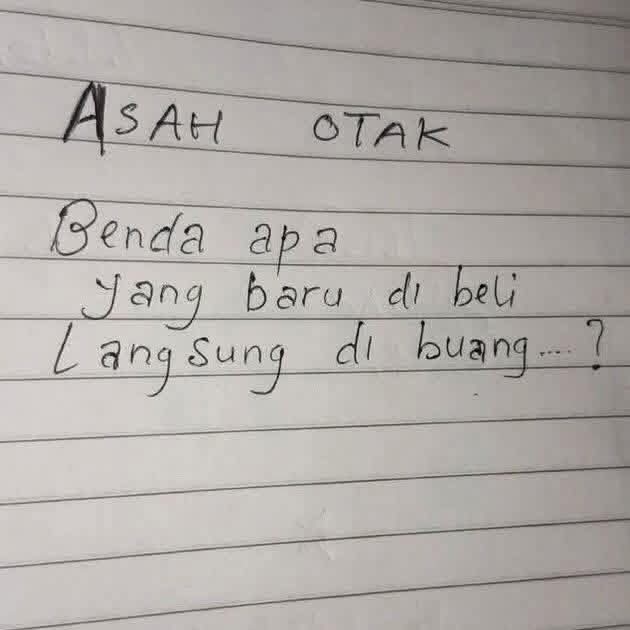 ASAH OTAK
Benda apa
yang baru di beli
Langsung di buang....?